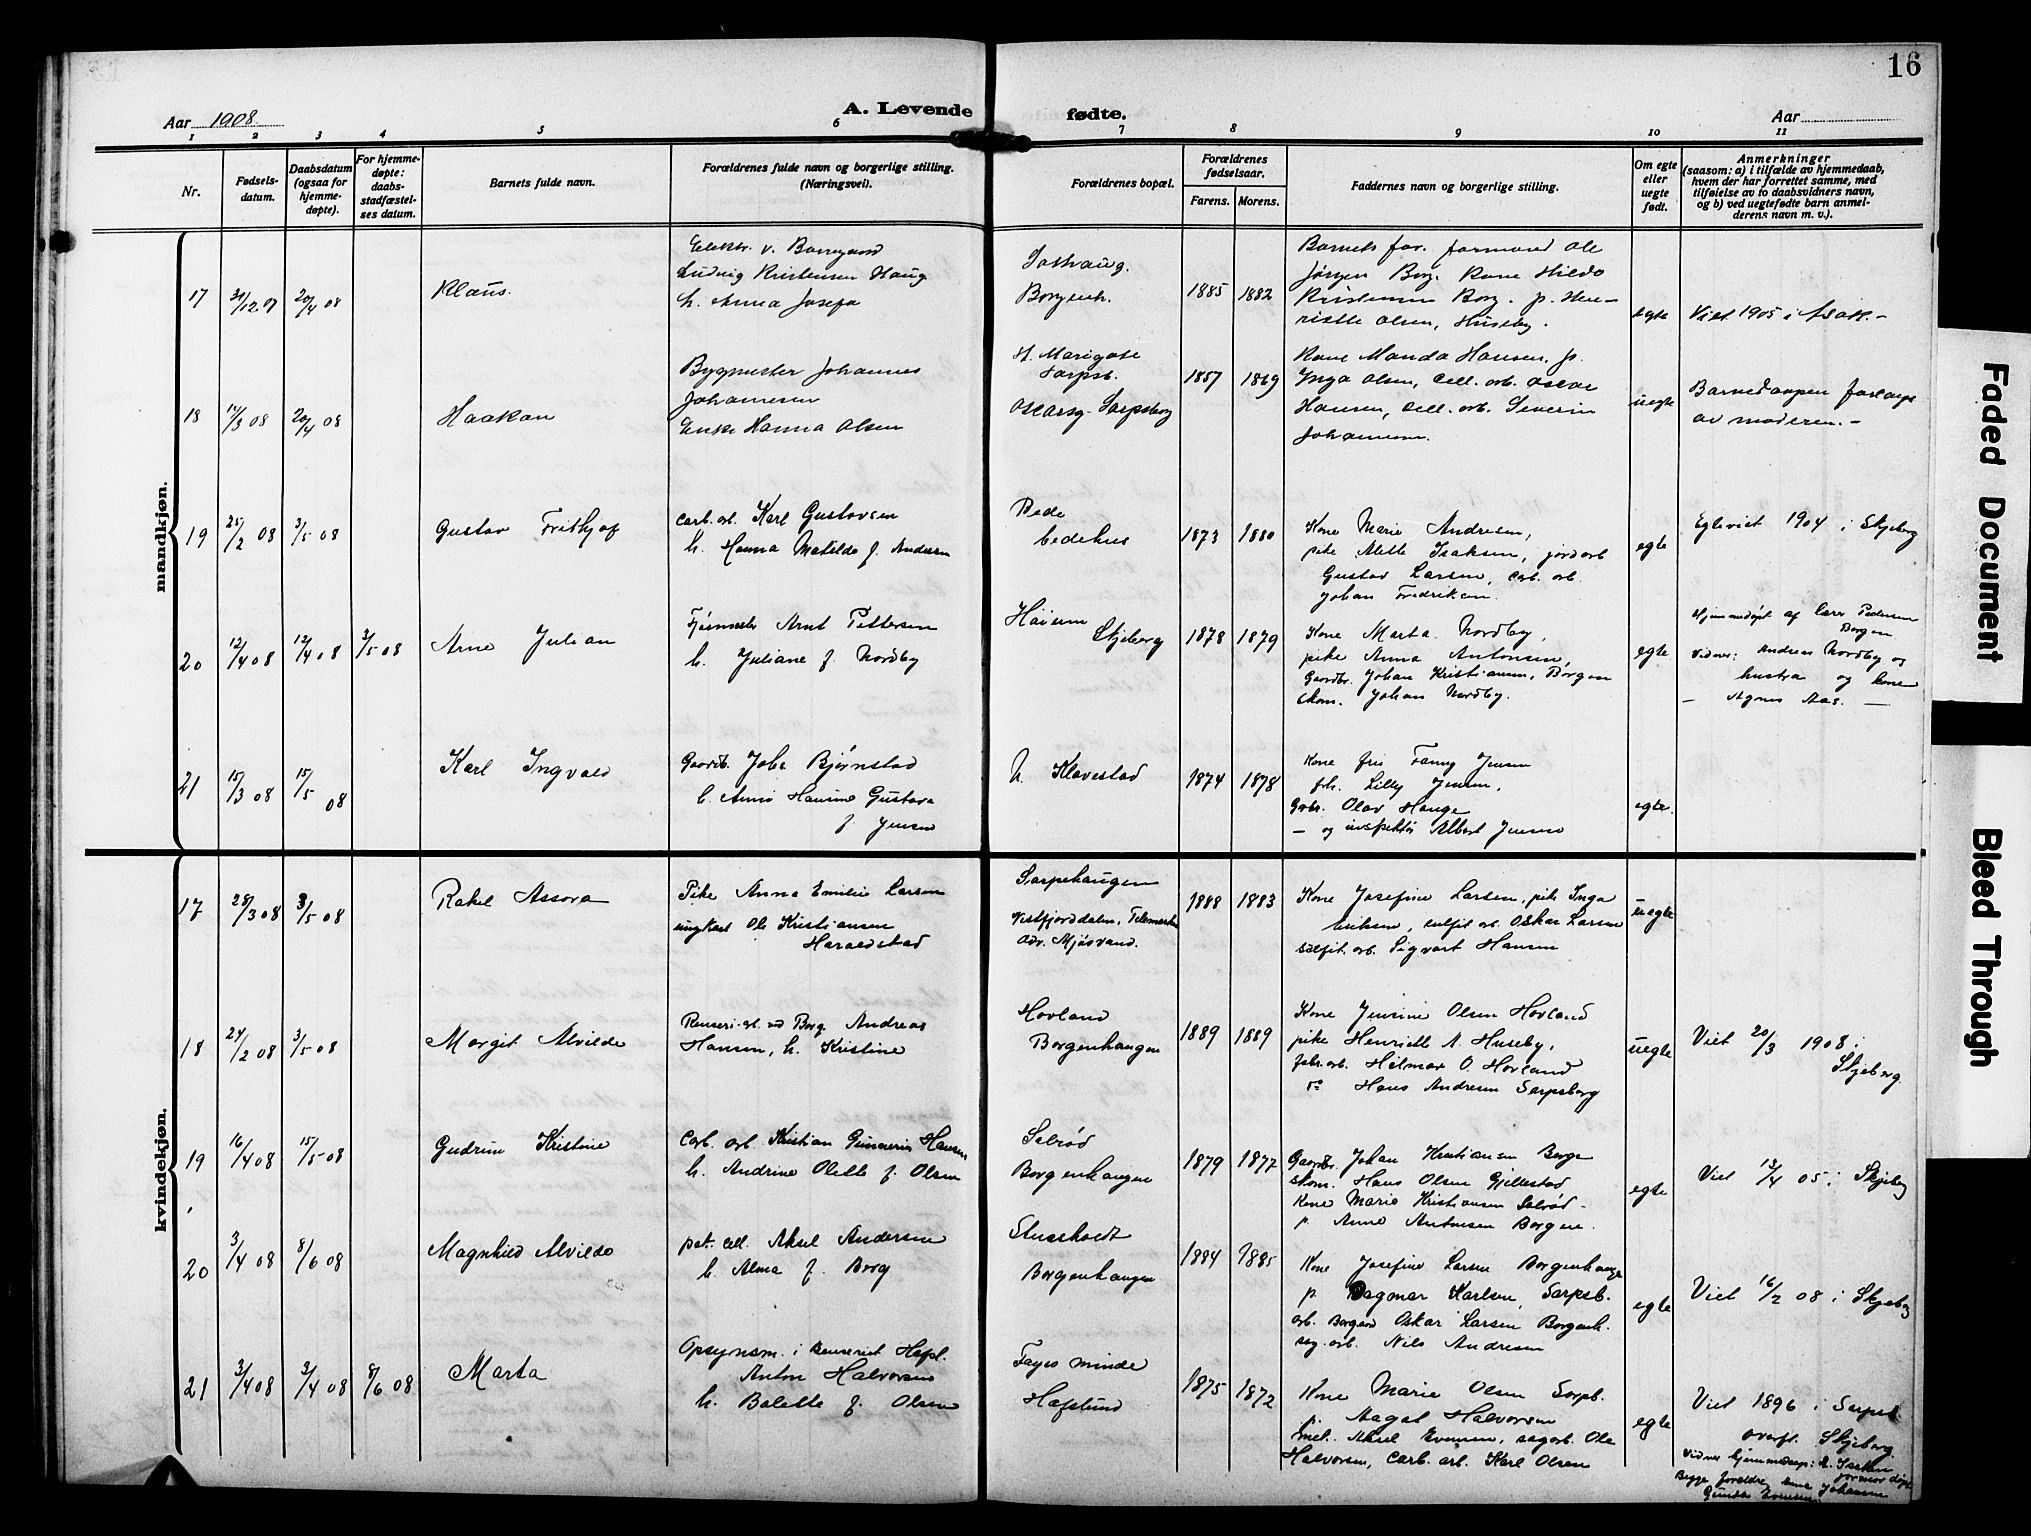 16
Aar 1908
A. Levende fødte.
Aar
1 2 3 4 5 6 7 8 9 10 11
Nr.
Fødsels-
datum.
Daabsdatum
(ogsaa for
hjemme-
døpte).
For hjemme-
døpte:
daabs-
stadfæstel-
ses datum.
Barnets fulde navn.
Forældrenes fulde navn og borgerlige stilling.
(Næringsvei).
Forældrenes bopæl.
Forældrenes
fødselsaar.
Farens. Morens.
Faddernes navn og borgerlige stilling.
Om egte
eller
uegte
født.
Anmerkninger
(saasom: a) i tilfælde av hjemmedaab,
hvem der har forrettet samme, med
tilføielse av to daabsvidners navn,
og b) ved uegtefødte barn anmel-
derens navn m. v.).
mandkjøn.
17 31/12 07 20/4 08
Klaus.
Elektr. v. Borregaard
Ludvig Kristensen Haug
h. Anna Josefa
Borgenh.
1885 1882
Barnets far. formand Ole
Jørgen Borg. Kone Hilda
Kristensen Borg. p. Hen-
riette Olsen, Huseby.
egte
Viet 1905 i Asak.-
18 14/3 08 20/4 08
Haakon
Bygmester Johannes
Johannesen
Enke Hanna Olsen
H. Marigate
Sarpsb.
Oscarsg. Sarpsborg
1857 1869
Kone Manda Hansen, p.
Inga Olsen, Cell. arb. Oscar
Hansen, Cell. arb. Severin
Johannesen.
uegte
av moderen.-
19 25/2 08 3/5 08
Gustav Frithjof
Carb. arb. Karl Gustavsen
h. Hanna Matilde f. Andersen
Bede
bedehus
1873 1880
Kone Marie Andresen,
pike Alette Isaksen, jordarb
Gustav Larsen, Carb. arb.
Johan Fredriksen.
egte
Egteviet 1904 i Skjeberg
20 12/4 08 12/4 08 3/5 08
Arne Julian
Fjøsmester Arnt Pettersen
h. Juliane f. Nordby
Haisum
Skjeberg
1878 1879
Kone Marta Nordby,
pike Anna Antonsen,
Gaardbr. Johan Kristiansen, Borgen
Skom. Johan Nordby.
egte
Hjemmedøpt af Lars Pedersen
Borgen
Vidner: Andreas Nordby og
hustru og kone
— Agnes Aas. —
21 15/3 08 15/5 08
Karl Ingvald
Gaardb. Johs Bjørnstad
h. Anna Hansine Gustava
f Jensen
N. Klavestad
1874 1878
Kone fru Fanny Jensen
frk. Lilly Jensen,
Gbr. Olav Hauge
— og inspektør Albert Jensen
egte.
kvindekjøn.
17 28/3 08 3/5 08
Rakel Assora
Pike Anna Emilie Larsen
ungkarl Ole Kristiansen
Haraldstad
Sarpehaugen
Vestfjorddalen, Telemarken
Adr. Mjøsvand.
1888 1883
Kone Josefine Larsen, pike Inga
Eriksen, sulfit arb. Oskar Larsen
sulfit. arb. Sigvart Hansen
uegte
18 24/2 08 3/5 08
Margit Alvilde
Renseri-arb. ved Borg. Andreas
Hansen, h. Kristine
Hovland
Borgenhaugen
1889 1889
Kone Jensine Olsen Hovland
pike Henriette A. Huseby,
fabr. arb. Hilmar O. Hovland
Hans Andresen Sarpsborg
uegte
Viet 20/3 1908 i
Skjeberg.
19 16/4 08 15/5 08
Gudrun Kristine
Carb. arb. Kristian Gunnerius Hansen
h. Andrine Olette f. Olsen
Solrød
Borgenhaugen
1879 1877
Gaardbr. Johan Kristiansen Borge
Skom. Hans Olsen Gjellestad
Kone Marie Kristiansen Solrød-
p. Anna Antonsen Borgen.
egte
Viet 13/4 05 i Skjeberg
20 3/4 08 8/6 08
Magnhild Alvilde
pat. cell. Aksel Andersen
h. Alma f. Borg
Borgenhaugen
1884 1885
Kone Josefine Larsen Borgenhauge
p Dagmar Karlsen, Sarpsb.
arb. Borgaard Oskar Larsen Borgenh.
sag. arb. Nils Andresen
egte
Viet 16/2 08 i Skjeberg
21 3/4 08 3/4 08 8/6 08
Marta
Opsynsm. i Renseriet Hafsl.
Anton Halvorsen
h. Bolette f. Olsen
Fayes minde
Hafslund
1875 1872
Kone Marie Olsen Sarpb.
p. Aagot Halvorsen
mel. Aksel Evensen, sagarb. Ole
Halvorsen, Carb. arb. Karl Olsen
egte
Viet 1896 i Sarpsb.
overf. Skjeberg.
Begge foreldre, Anna Johansen
Gunda Evensen
Faded Document
Bleed Through